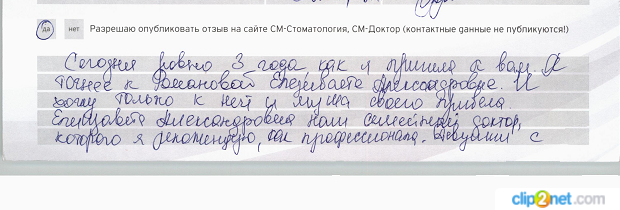 да нет Разрешаю опубликовать отзыв на сайте СМ-Стоматология, СМ-Доктор (контактные данные не публикуются!)
Сегодня ровно 3 года как я пришла к вам. А
точнее к Романовой Елизавете Александровне. И
хожу только к ней и мужа своего привела.
Елизавета Александровна наш семейный доктор,
которого я рекомендую, как профессионала. Девушки с
clip2net.com